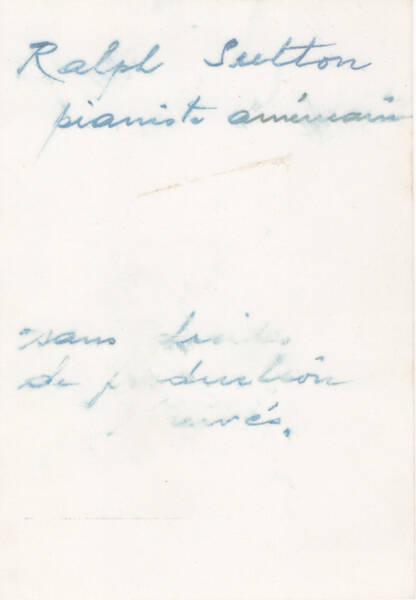 Ralph Sutton
pianiste américain
sans droits
de production